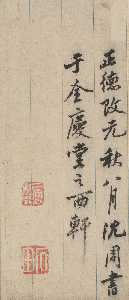 正德改元秋八月沈周書
于全慶堂之西軒